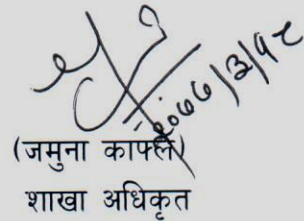 २०७७/३/१८
(जमुना काफ्ले)
शाखा अधिकृत